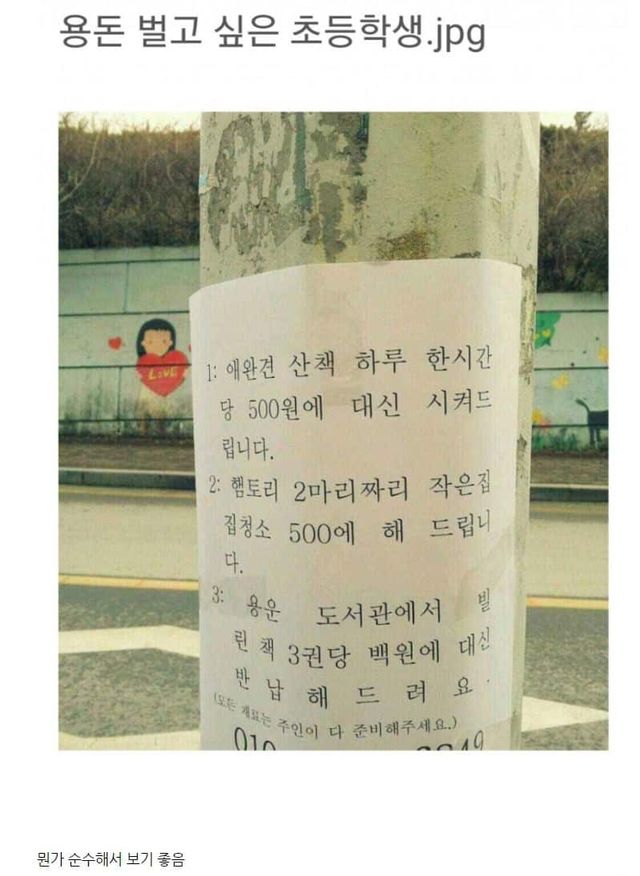 용돈 벌고 싶은 초등학생.jpg
LOVE
1: 애완견 산책 하루 한시간
당 500원에 대신 시켜드
립니다.
2: 햄토리 2마리짜리 작은집
집청소 500에 해 드립니
다.
3: 용운 도서관에서 빌
린 책 3권당 백원에 대신
반납해드려요.
(모든 재료는 주인이 다 준비해주세요.)
010
뭔가 순수해서 보기 좋음